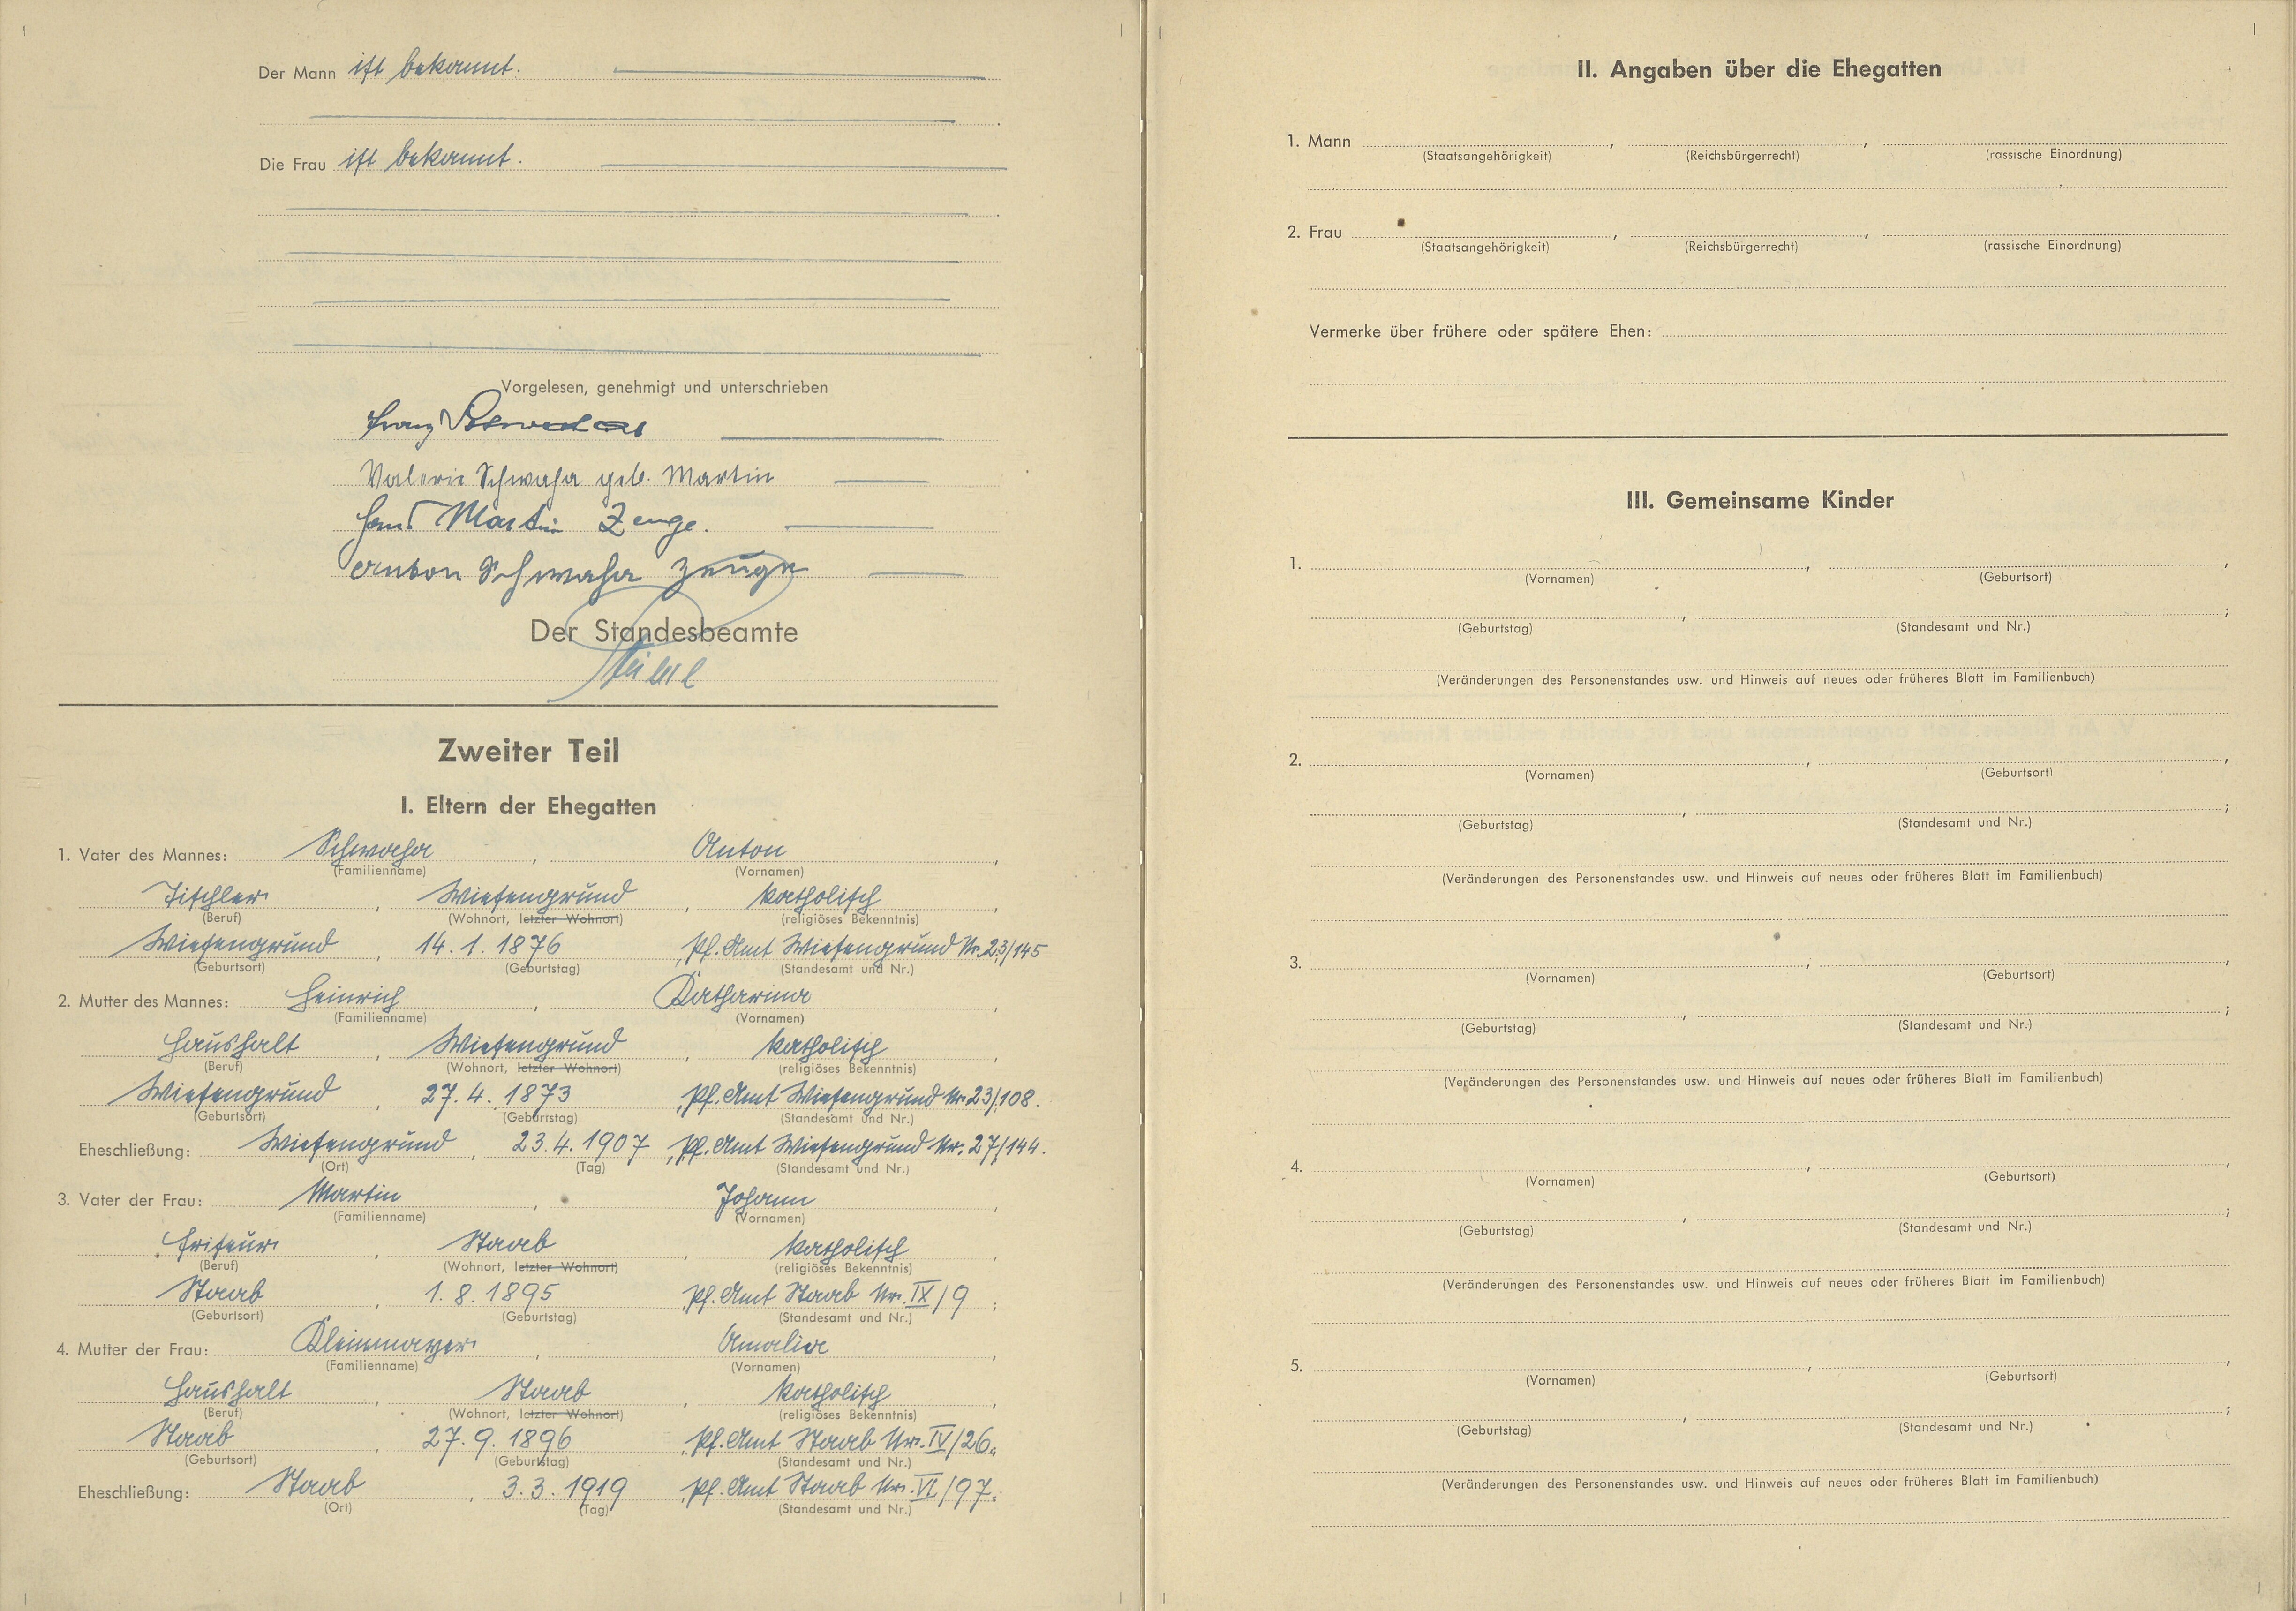 Der Mann ist bekannt.
Die Frau ist bekannt.
Vorgelesen, genehmigt und unterschrieben
Franz
Valerie Schwaha geb. Martin
Hans Martin Zeuge.
Anton Schwaha Zeuge
Der Standesbeamte
Zweiter Teil
I. Eltern der Ehegatten
1. Vater des Mannes: Schwaha, Anton,
(Familienname) (Vornamen)
Tischler, Wiesengrund, katholisch,
(Beruf) (Wohnort, letzter Wohnort) (religiöses Bekenntnis)
Wiesengrund, 14. 1. 1876, Pf. Amt Wiesengrund Nr. 23/145
(Geburtsort) (Geburtstag) (Standesamt und Nr.)
2. Mutter des Mannes: Heinrich, Katharina,
(Familienname) (Vornamen)
Haushalt, Wiesengrund, katholisch,
(Beruf) (Wohnort, letzter Wohnort) (religiöses Bekenntnis)
Wiesengrund, 27. 4. 1873, Pf. Amt Wiesengrund Nr. 23/108.
(Geburtsort) (Geburtstag) (Standesamt und Nr.)
Eheschließung: Wiesengrund, 23. 4. 1907, Pf. Amt Wiesengrund Nr. 27/144.
(Ort) (Tag) (Standesamt und Nr.)
3. Vater der Frau: Martin, Johann,
(Familienname) (Vornamen)
Friseur, Staab, katholisch,
(Beruf) (Wohnort, letzter Wohnort) (religiöses Bekenntnis)
Staab, 1. 8. 1895, Pf. Amt Staab Nr. IX/9;
(Geburtsort) (Geburtstag) (Standesamt und Nr.)
4. Mutter der Frau: Kleinmayer, Amalia,
(Familienname) (Vornamen)
Haushalt, Staab, katholisch,
(Beruf) (Wohnort, letzter Wohnort) (religiöses Bekenntnis)
Staab, 27. 9. 1896, Pf. Amt Staab Nr. IV/26.
(Geburtsort) (Geburtstag) (Standesamt und Nr.)
Eheschließung: Staab, 3. 3. 1919, Pf. Amt Staab Nr. VI/97.
(Ort) (Tag) (Standesamt und Nr.)
II. Angaben über die Ehegatten
1. Mann , ,
(Staatsangehörigkeit) (Reichsbürgerrecht) (rassische Einordnung)
2. Frau , ,
(Staatsangehörigkeit) (Reichsbürgerrecht) (rassische Einordnung)
Vermerke über frühere oder spätere Ehen:
III. Gemeinsame Kinder
1. , ,
(Vornamen) (Geburtsort)
, ;
(Geburtstag) (Standesamt und Nr.)
(Veränderungen des Personenstandes usw. und Hinweis auf neues oder früheres Blatt im Familienbuch)
2. , ,
(Vornamen) (Geburtsort)
, ;
(Geburtstag) (Standesamt und Nr.)
(Veränderungen des Personenstandes usw. und Hinweis auf neues oder früheres Blatt im Familienbuch)
3. , ,
(Vornamen) (Geburtsort)
, ;
(Geburtstag) (Standesamt und Nr.)
(Veränderungen des Personenstandes usw. und Hinweis auf neues oder früheres Blatt im Familienbuch)
4. , ,
(Vornamen) (Geburtsort)
, ;
(Geburtstag) (Standesamt und Nr.)
(Veränderungen des Personenstandes usw. und Hinweis auf neues oder früheres Blatt im Familienbuch)
5. , ,
(Vornamen) (Geburtsort)
, ;
(Geburtstag) (Standesamt und Nr.)
(Veränderungen des Personenstandes usw. und Hinweis auf neues oder früheres Blatt im Familienbuch)